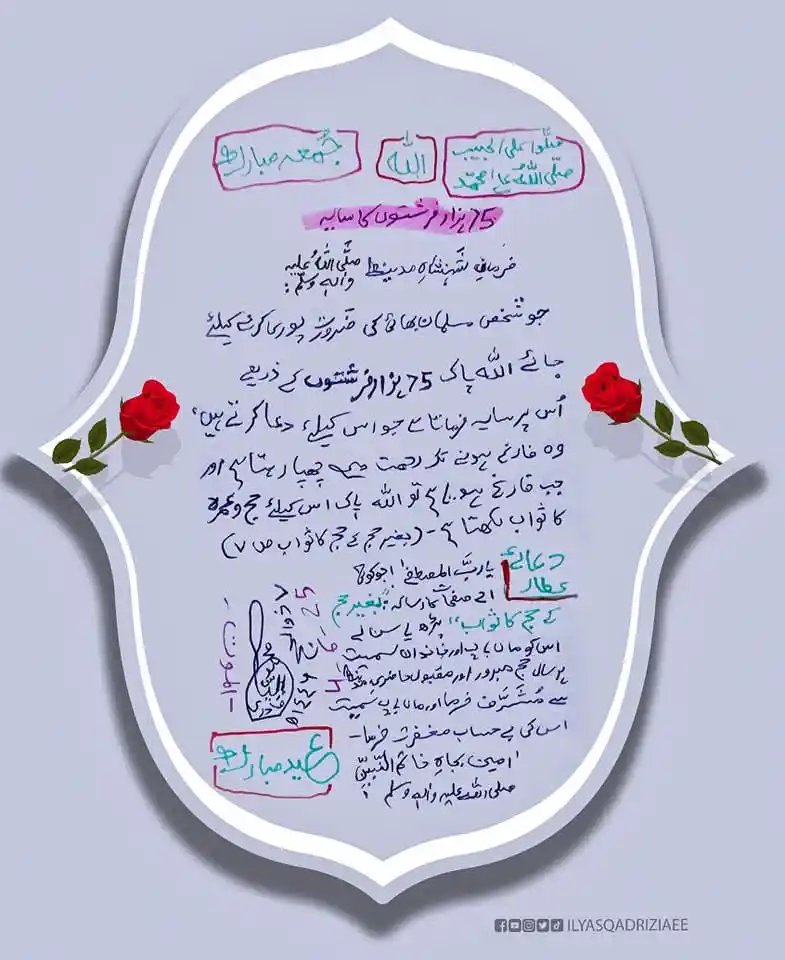 صلُّوا علی الحبیب
صلَّی اللّٰهُ علٰی محمّد
اللّٰه
جُمعہ مبارک
75 ہزار فرشتوں کا سایہ
فرمانِ شَہنشاہِ مدینہ صلَّی اللّٰهُ علیہ
واٰلہٖ وسلَّم:
جو شخص مسلمان بھائی کی ضَرورت پوری کرنے کیلئے
جائے اللّٰہ پاک 75 ہزار فرشتوں کے ذریعے
اُس پر سایہ فرماتا ہے جو اس کیلئے دعا کرتے ہیں،
وہ فارغ ہونے تک رحمت میں چھپا رہتا ہے اور
جب فارغ ہو جاتا ہے تو اللّٰہ پاک اس کیلئے حج و عمرہ
کا ثواب لکھتا ہے۔ (بغیر حج کے حج کا ثواب ص ۷)
دعائے
عطار
یا ربَّ المصطفٰے! جو کوئی
صفحات کا رسالہ: "بغیر حج
کے حج کا ثواب" پڑھ یا سن لے
اس کو ماں باپ اور خاندان سمیت
ہر سال حجِ مبرور اور مقبول حاضریِ مدینہ
سے مُشَرَّف فرما اور ماں باپ سَمیت
اس کی بے حساب مغفرت فرما۔
اٰمین بجاہِ خاتمِ النَّبیّن
صلی اللّٰہ علیہ واٰلہٖ وسلم
الموت
عید مبارک
ILYASQADRIZIAEE